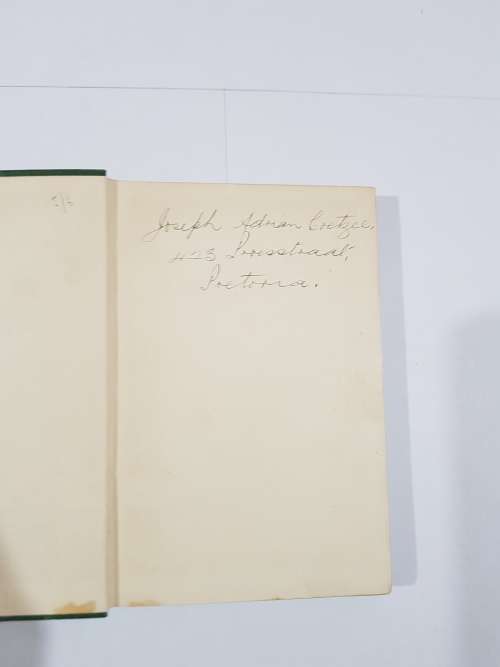 5/6
Joseph Adrian Coetzee,
423 Proesstraat,
Pretoria.